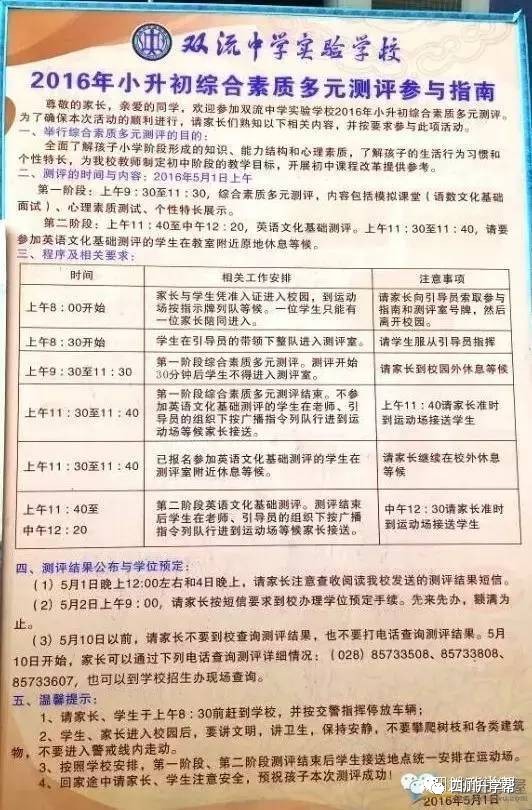 双流中学实验学校
2016年小升初综合素质多元测评参与指南
尊敬的家长，亲爱的同学，欢迎参加双流中学实验学校2016年小升初综合素质多元测评。
为了确保本次活动的顺利进行，请家长们熟知以下相关内容，并按要求参与此项活动。
一、举行综合素质多元测评的目的：
全面了解孩子小学阶段形成的知识、能力结构和心理素质，了解孩子的生活行为习惯和
个性特长，为我校教师制定初中阶段的教学目标，开展初中课程改革提供参考。
二、测评的时间与内容：2016年5月1日上午
第一阶段：上午9：30至11：30，综合素质多元测评，内容包括模拟课堂（语数文化基础
面试）、心理素质测试、个性特长展示。
第二阶段：上午11：40至中午12：20，英语文化基础测评。上午11：30至11：40，请要
参加英语文化基础测评的学生在教室附近原地休息等候。
三、程序及相关要求：
时间 相关工作安排 注意事项
上午8：00开始
家长与学生凭准入证进入校园，到运动
场按指示牌列队等候。一位学生只能有
一位家长陪同进入。
请家长向引导员索取参与
指南和测评室号牌，然后
离开校园。
上午8：30开始 学生在引导员的带领下整队进入测评室。 请学生服从引导员指挥
上午9：30至11：30
第一阶段综合素质多元测评。测评开始
30分钟后学生不得进入测评室。
请家长到校园外休息等候
上午11：30至11：40
第一阶段综合素质多元测评结束。不参
加英语文化基础测评的学生在老师、引
导员的组织下按广播指令列队行进到运
动场等候家长接送。
上午11：40请家长准时
到运动场接送学生
上午11：30至11：40
已报名参加英语文化基础测评的学生在
测评室附近休息等候。
请家长继续在校外休息
等候
上午11：40至
中午12：20
第二阶段英语文化基础测评。测评结束
后学生在老师、引导员的组织下按广播
指令列队行进到运动场等候家长接送。
中午12：30请家长准时
到运动场接送学生
四、测评结果公布与学位预定：
（1）5月1日晚上12:00左右和4日晚上，请家长注意查收阅读我校发送的测评结果短信。
（2）5月2日上午9：00，请家长按短信要求到校办理学位预定手续。先来先办，额满为
止。
（3）5月10日以前，请家长不要到校查询测评结果，也不要打电话查询测评结果。5月
10日开始，家长可以通过下列电话查询测评详细情况：（028）85733508、85733808、
85733607，也可以到学校招生办现场查询。
五、温馨提示：
1、请家长、学生于上午8：30前赶到学校，并按交警指挥停放车辆；
2、学生、家长进入校园后，要讲文明，讲卫生，保持安静，不要攀爬树枝和各类建筑
物，不要进入警戒线内走动。
3、按照学校安排，第一阶段、第二阶段测评结束后学生接送地点统一安排在运动场。
4、回家途中请家长、学生注意安全，预祝孩子本次测评成功！
四川升学帮
2016年5月1日